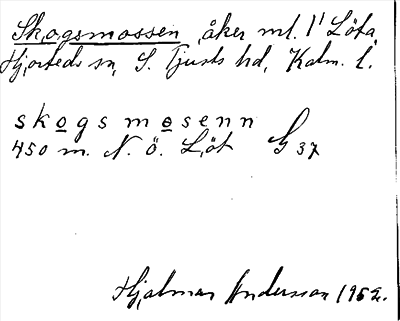 Skogsmossen, åker ml. 1¹ Löta,
Hjorteds sn, S. Tjusts hd, Kalm. l.
skogsmosenn
450 m. N. ö. Löt G 37
Hjalmar Andersson 1952.